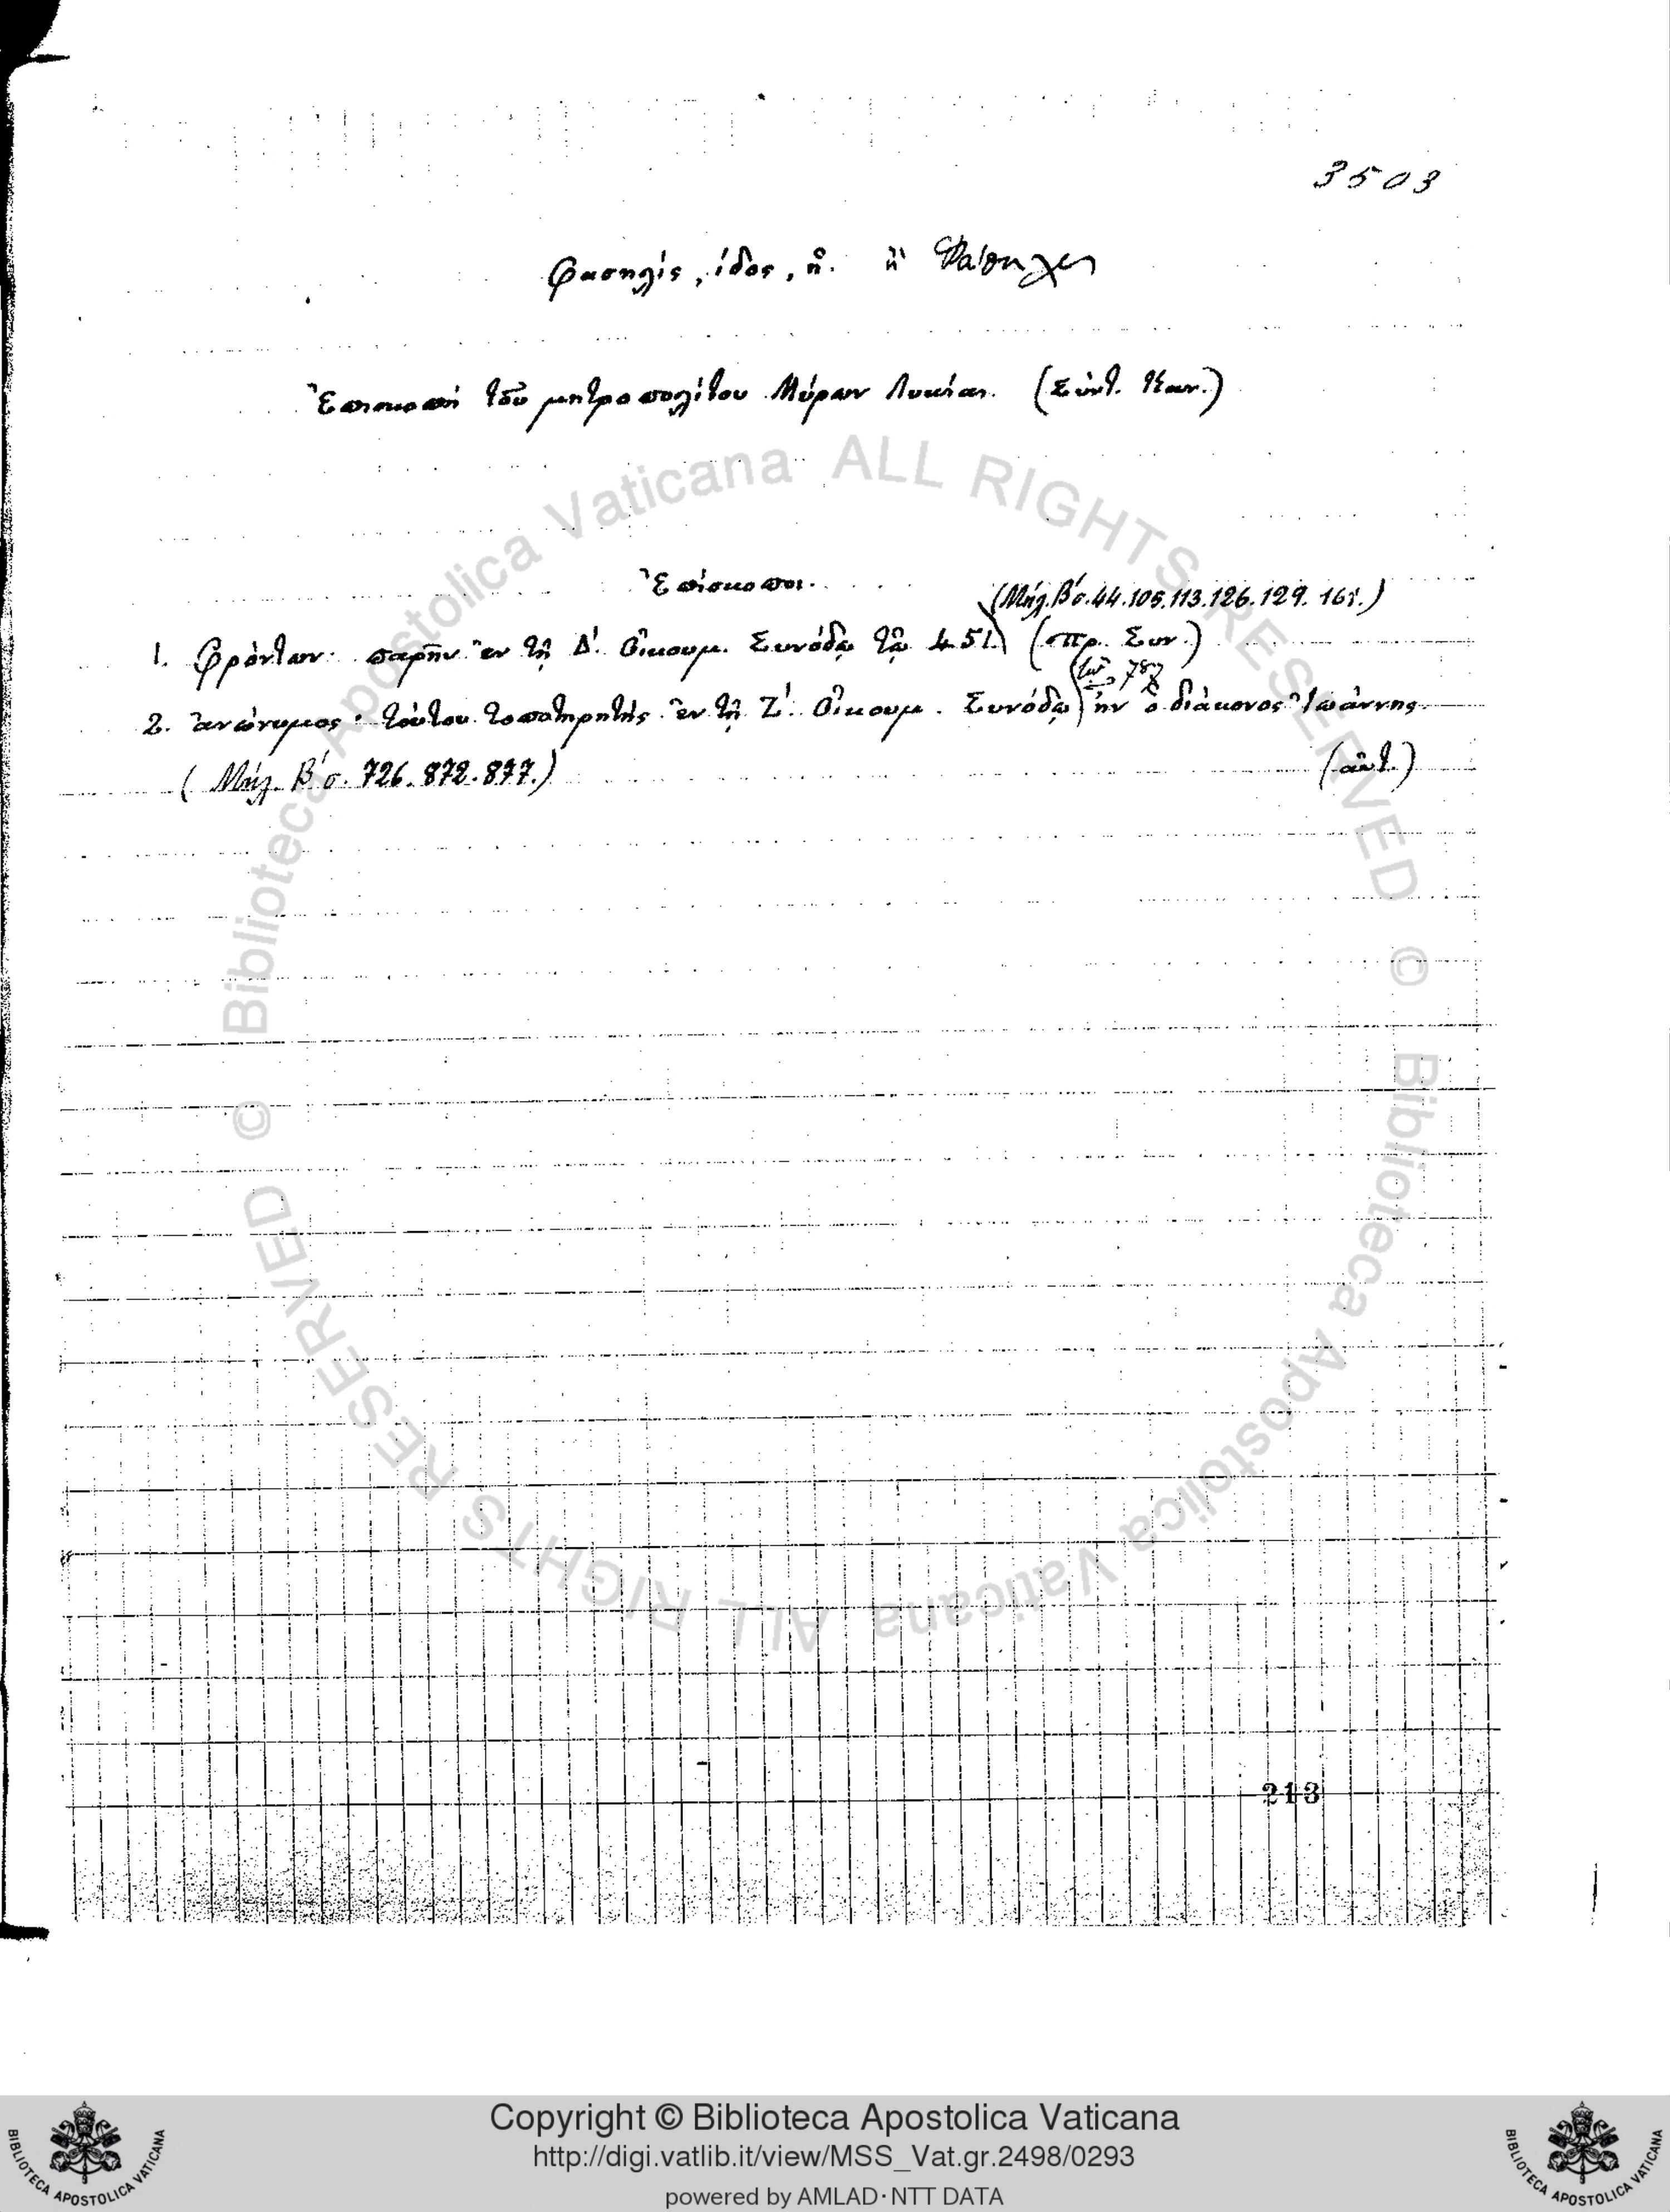 3503
Φασηλίς, ίδος, ἡ. ἢ Φάσηλις
Ἐπισκοπὴ τοῦ μητροπολίτου Μύρων Λυκίας. (Σύντ. Καν.)
Ἐπίσκοποι.
(Μάη. Β΄ σ. 44. 105. 113. 126. 129. 168.)
1. Φρόντων· παρῆν ἐν τῇ Δ΄. Οἰκουμ. Συνόδῳ τῷ 451 (πρ. Συν.)
τῷ 787
2. ἀνώνυμος· τούτου τοποτηρητὴς ἐν τῇ Ζ΄. Οἰκουμ. Συνόδῳ ἦν ὁ διάκονος Ἰωάννης
(Μάη. Β΄ σ. 726. 872. 877.) (αὐτ.)
213
© Biblioteca Apostolica Vaticana ALL RIGHTS RESERVED
© Biblioteca Apostolica Vaticana ALL RIGHTS RESERVED
BIBLIOTECA APOSTOLICA VATICANA
Copyright © Biblioteca Apostolica Vaticana
http://digi.vatlib.it/view/MSS_Vat.gr.2498/0293
powered by AMLAD·NTT DATA
BIBLIOTECA APOSTOLICA VATICANA